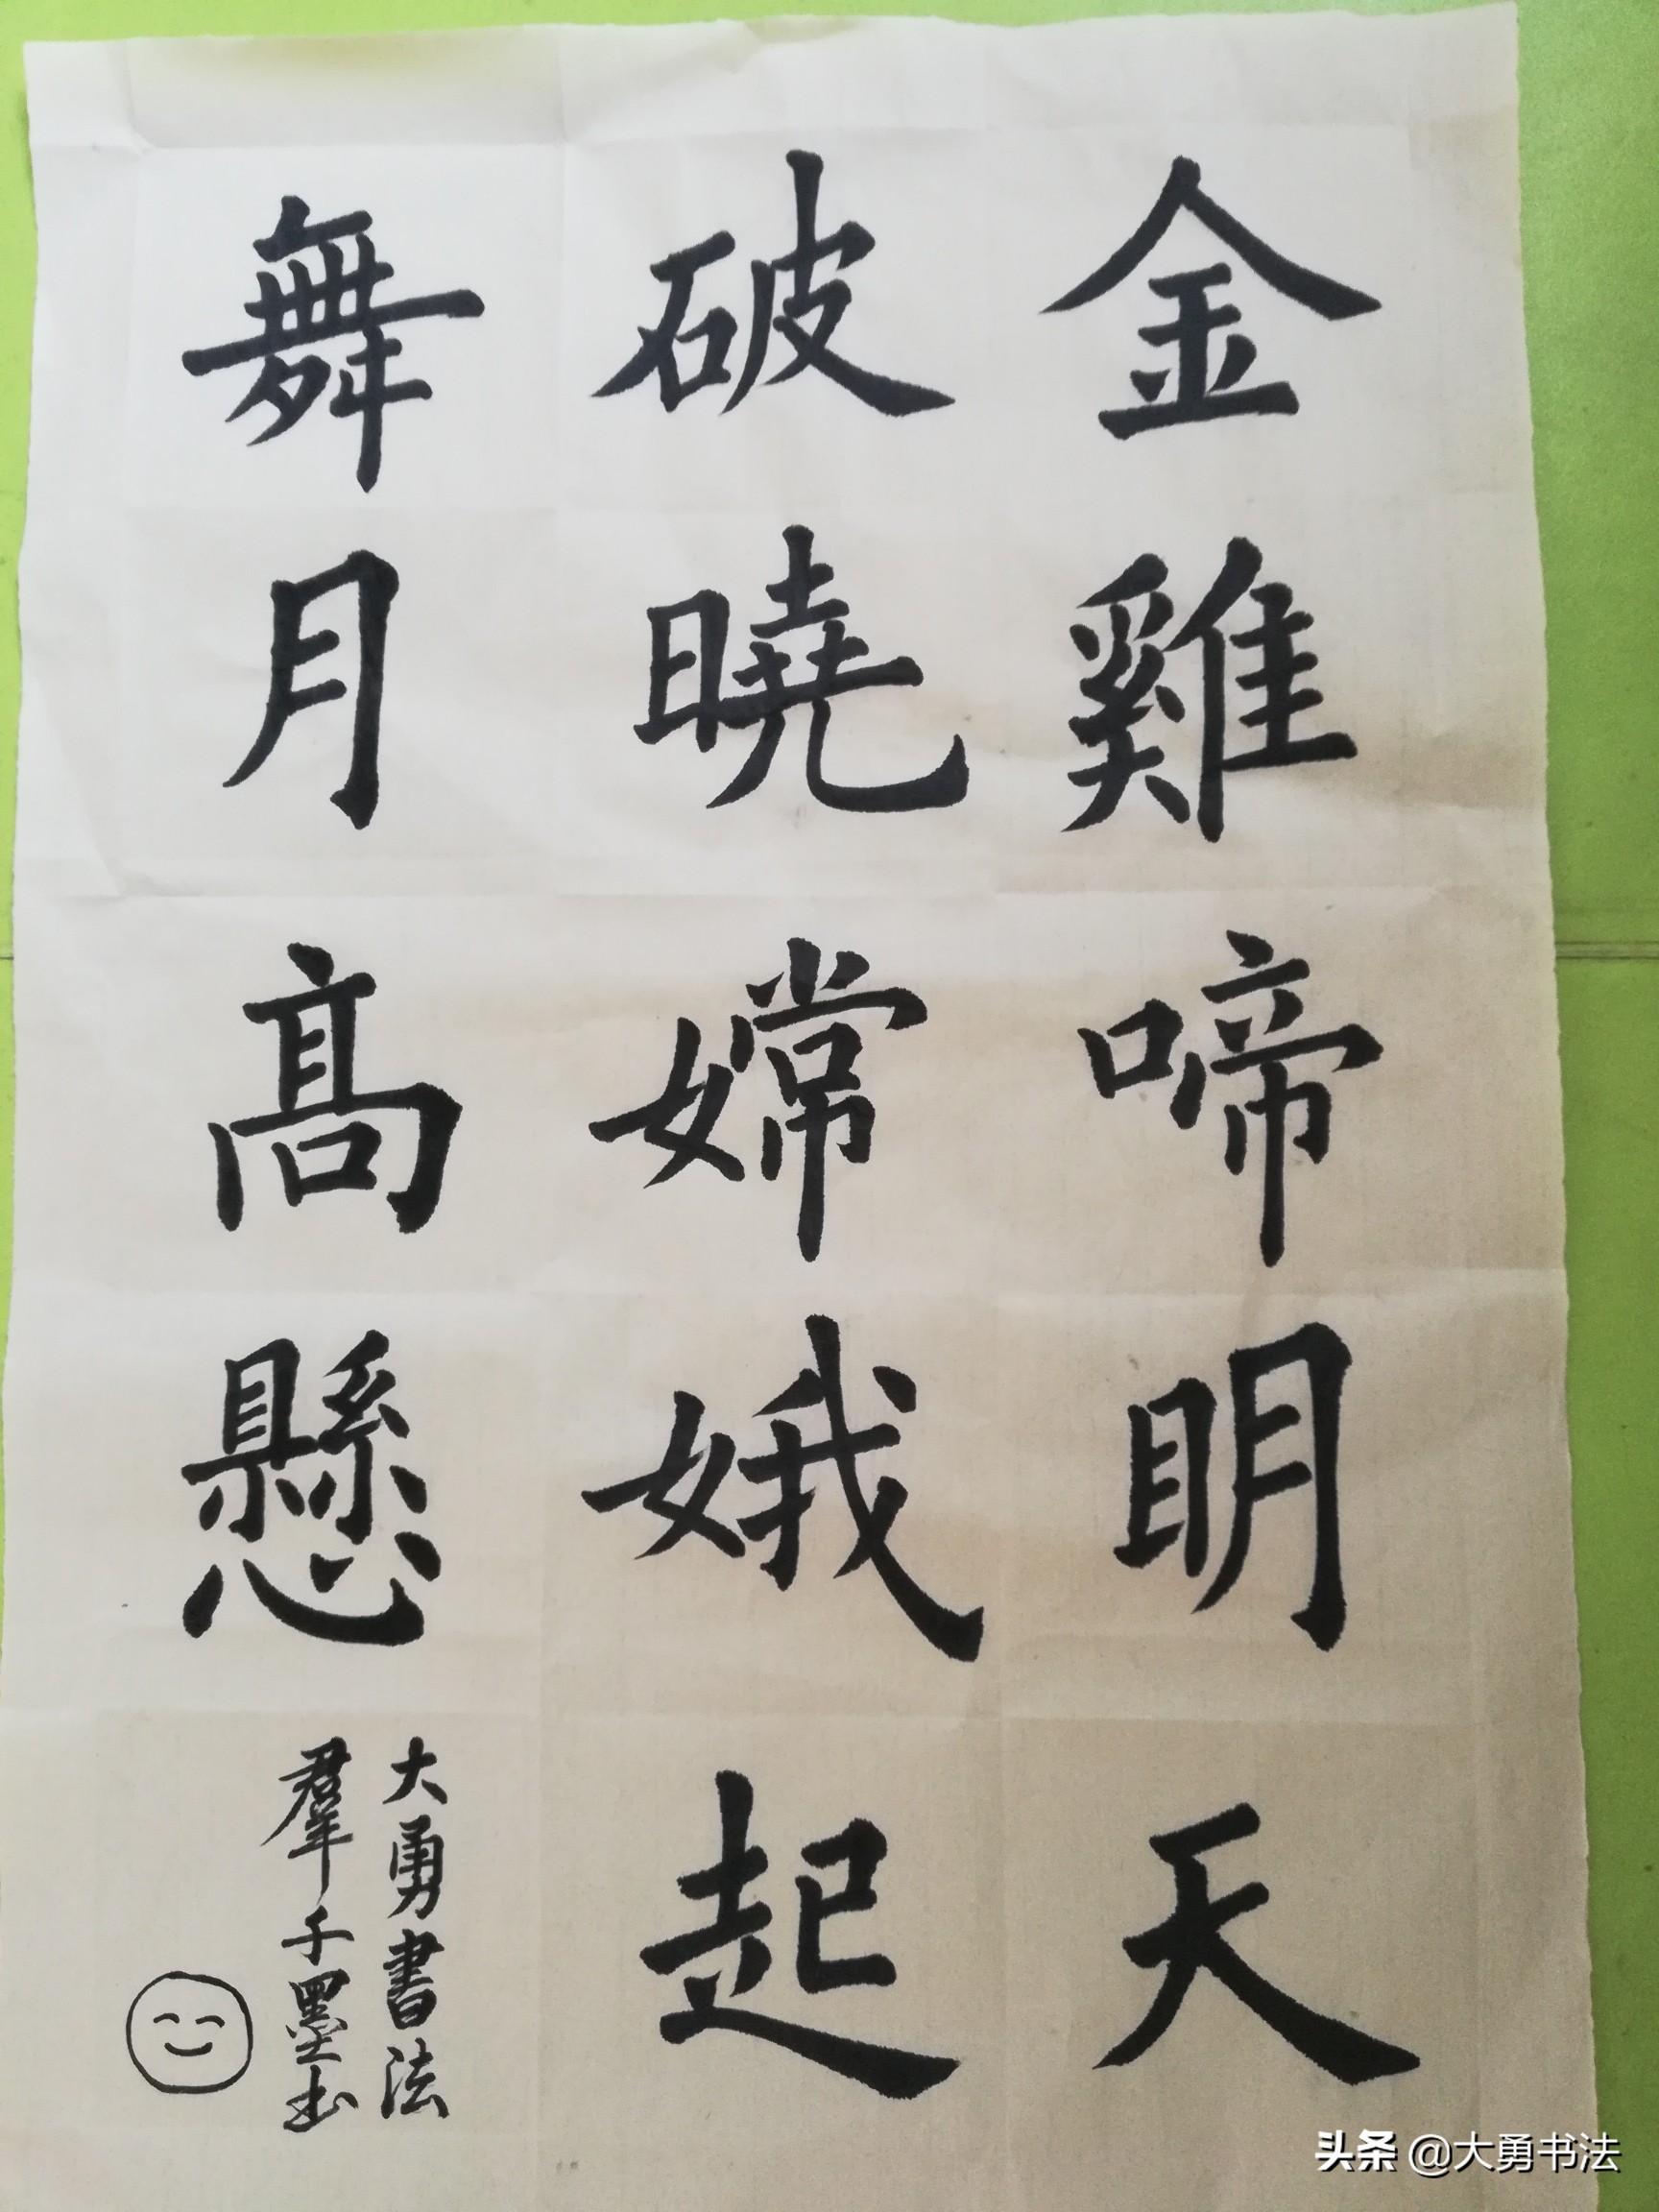 金雞啼明天
破曉嫦娥起
舞月高懸
大勇書法
羣子墨书
头条 @大勇书法